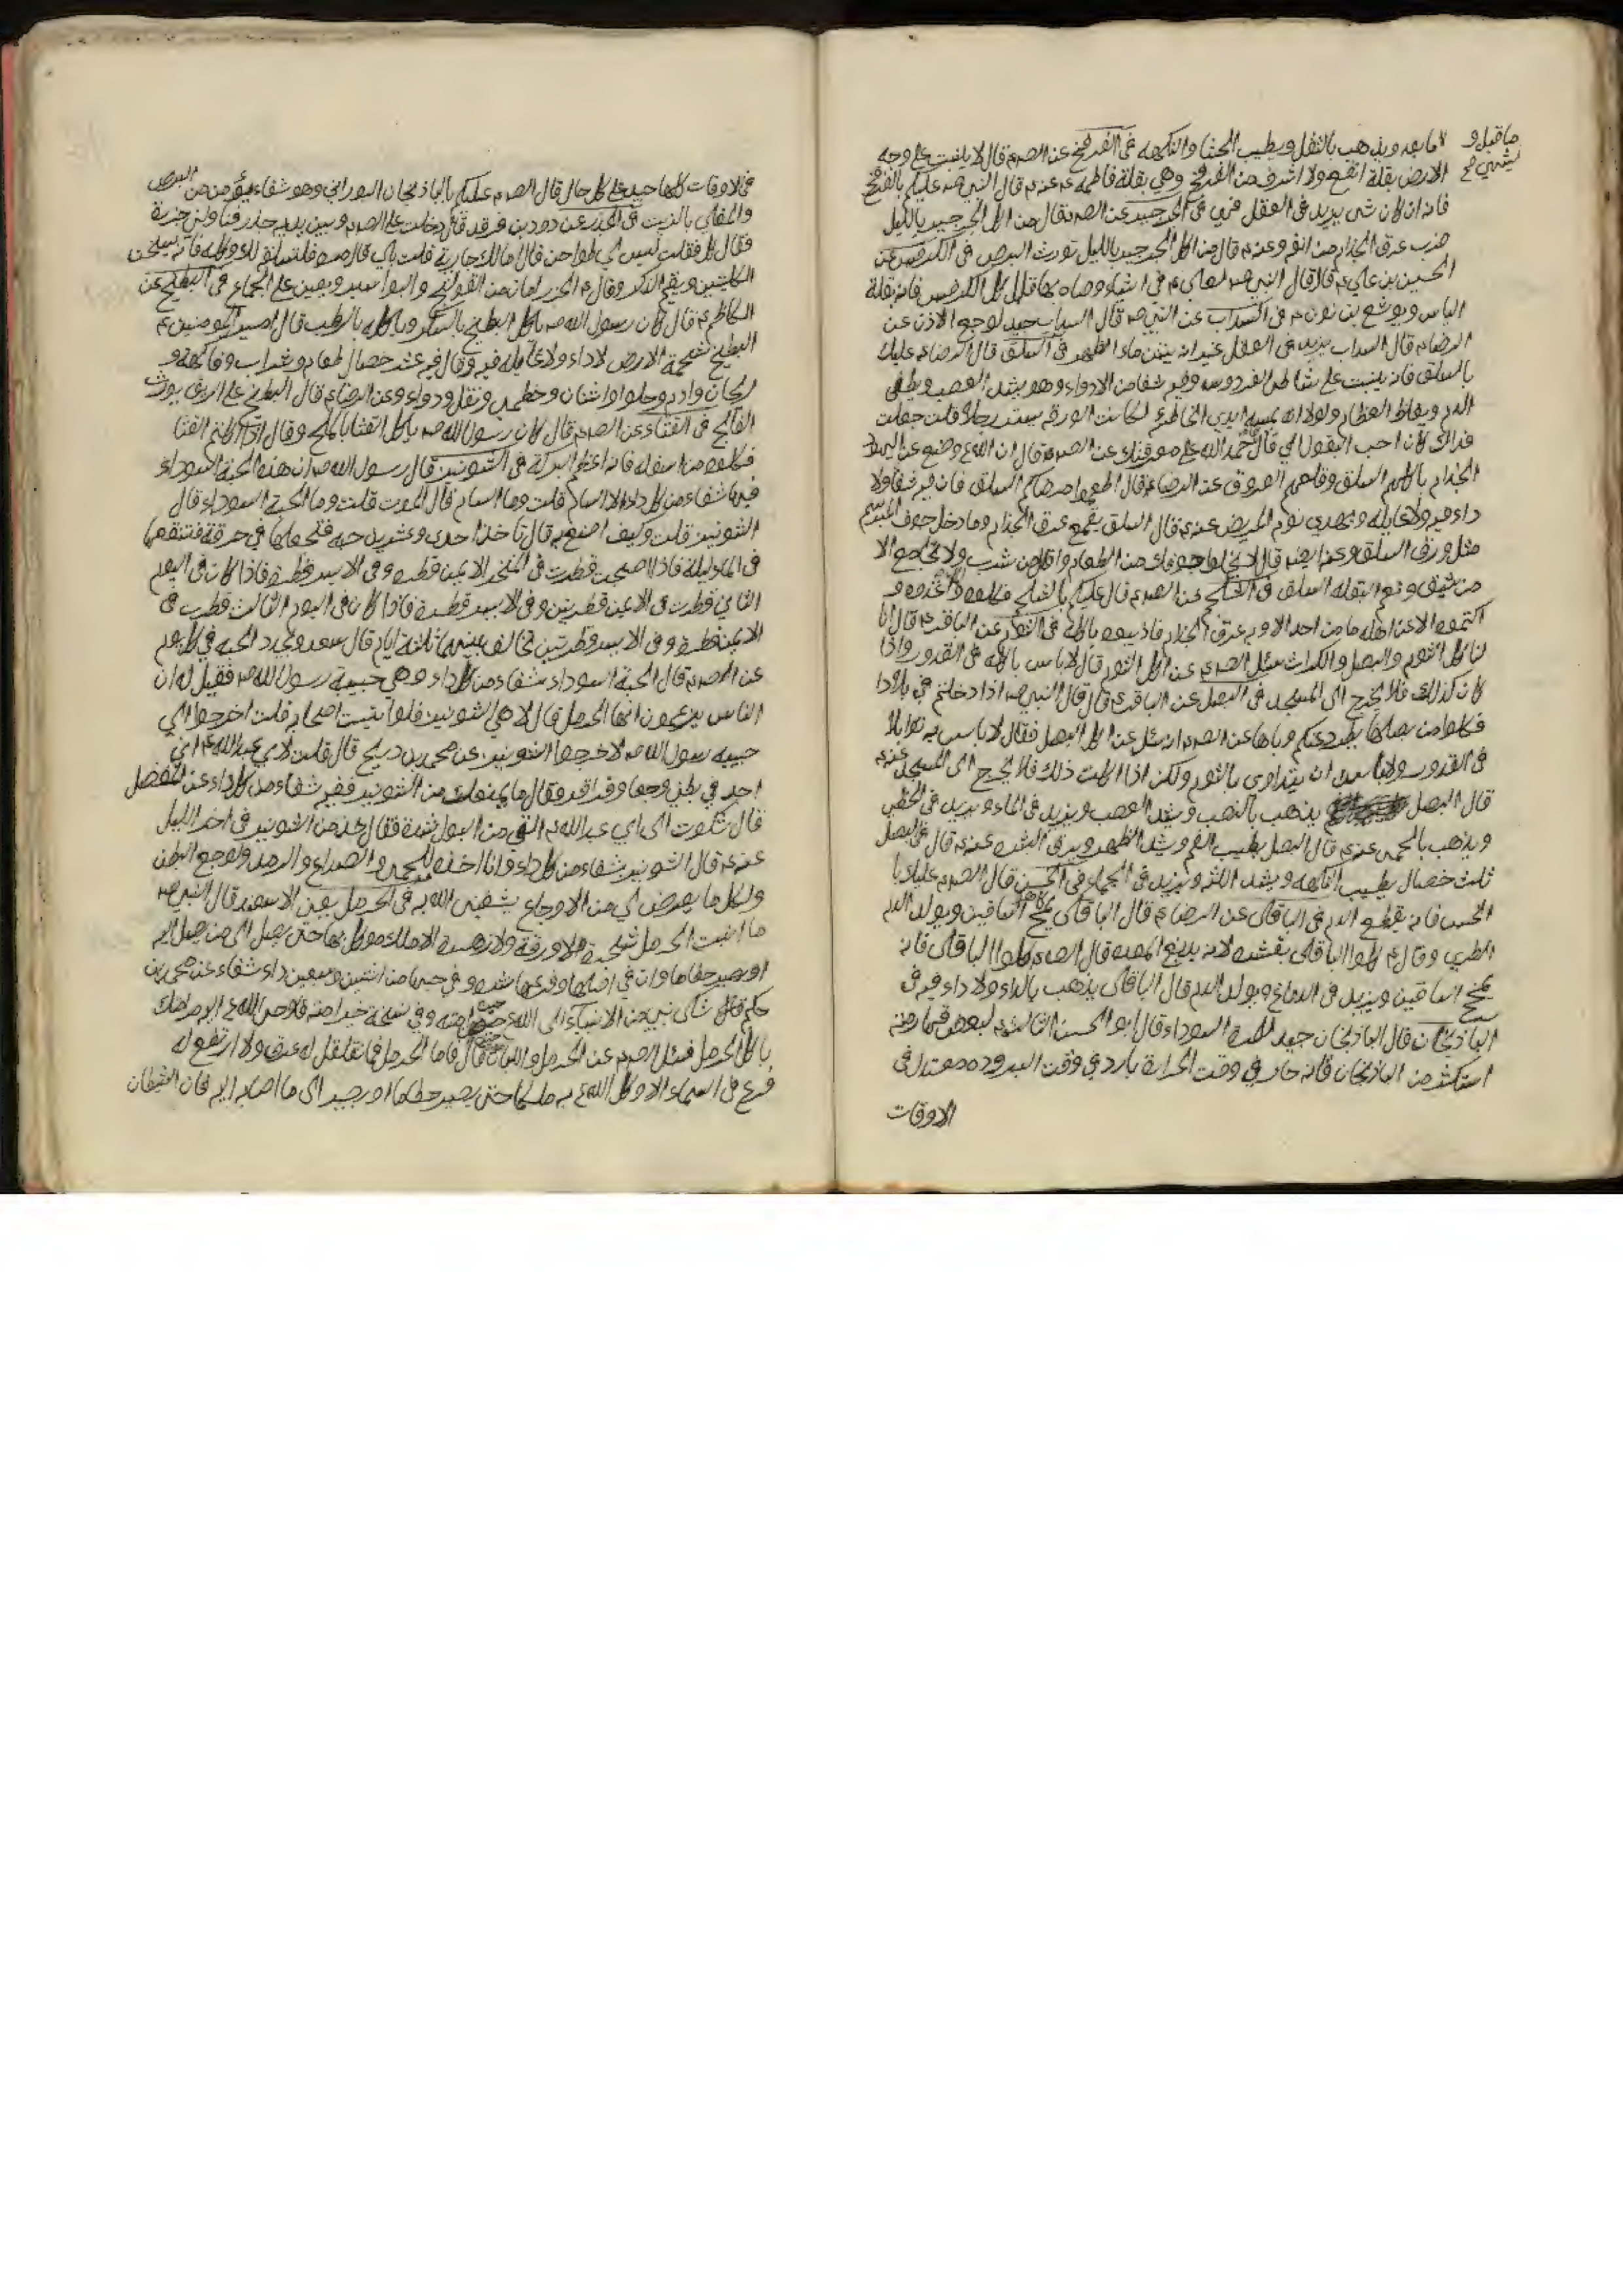 ما قبل و
يشهي خ
لما بعد ويذهب بالثقل ويطيب الجشا والنكهه في الفرفخ عن الصم قال لا ينبت على وجه
الارض بقلة انفع ولا اشرف من الفرفخ وهي بقلة فاطمه ع عنه ع قال النبي ص عليكم بالفرفخ
فانه ان كان شي يزيد في العقل فهي في الجرجير عن الصم قال من اكل الجرجير بالليل
ضرب عرق الجذام من انفه وعنه ع قال من اكل الجرجير بالليل تورث البرص في الكرفس عن
الحسين بن علي ع قال قال النبي ص لعلي ع في اشياء وصاه بها قال كل الكرفس فانه بقلة
الياس ويوشع بن نون ع في السداب عن النبي ص قال السداب جيد لوجع الاذن عن
الرضا ع قال السداب يزيد في العقل غير انه ينتن ماء الظهر في السلق قال الرضا ع عليك
بالسلق فانه ينبت على شاطئ الفردوس وفيه شفا من الادواء وهو يشد العصب ويطفي
الدم ويغلظ العظام ولولا انه تمسه ايدي الخاطئ لكانت الورقه ستر رجلا قلت جعلت
فداك كان احب البقول الي قال فاحمد الله على معرفتك عن الصم قال ان الله ع رفع عن اليهود
الجذام باكلهم السلق وقلعهم العروق عن الرضا ع قال اطعموا مرضاكم السلق فان فيه شفا ولا
داء فيه ولا غايله ويهدي نوم المريض عنه ع قال السلق يقمع عرق الجذام وما دخل جوف المبرسم
مثل ورق السلق وعن قال لا يخلوا جوفك من الطعام واقل من شرب ولا تجامع الا
من شبق ونعم البقله السلق في الشلجم عن الصم قال عليكم بالشلجم فكلوه واغذوه و
اكتموه الا عن اهله ما من احد الا وبه عرق الجذام فاذيبوه باكله في الثوم عن الباقر ع قال انا
لناكل الثوم والبصل والكراث سئل الصم عن اكل الثوم قال لا باس باكله في القدور واذا
كان كذلك فلا يخرج الى المسجد في البصل عن الباقر ع قال قال النبي ص اذا دخلتم بلادا
فكلوا من بصلها يطرد عنكم وباها عن الصم انه سئل عن اكل البصل فقال لا باس به توابلا
في القدور ولا باس ان يتداوى بالثوم ولكن اذا اكلت ذلك فلا يخرج الى المسجد عنه ع
قال البصل يذهب بالنصب ويشد العصب ويزيد في الماء ويزيد في الخطى
ويذهب بالحمى عنه ع قال البصل يطيب الفم ويشد الظهر ويرق البشره عنه ع قال في البصل
ثلث خصال يطيب النكهه ويشد اللثه ويزيد في الجماع في الخس قال الصم عليك با
الخس فانه يقطع الدم في الباقلى عن الرضا ع قال الباقلى يمخ الساقين ويولد الدم
الطري وقال ع كلوا الباقلى بقشره لانه يدبغ المعده قال الصم كلوا الباقلى فانه
يمخ الساقين ويزيد في الدماغ ويولد الدم قال الباقلى يذهب بالداء ولا داء فيه في
الباذنجان قال الباذنجان جيد للمرة السوداء قال ابو الحسن الثالث ع لبعض قهارمته
استكثر من الباذنجان فانه حار في وقت الحرارة بارد في وقت البروده معتدل في
الاوقات
في الاوقات كلها جيد على كل حال قال الصم عليكم بالباذنجان البوراني وهو شفاء يؤمن من البرص
والمقلي بالزيت في الجزر عن داود بن فرقد قال دخلت على الصم وبين يديه جزر فناولني جزرة
فقال كل فقلت ليس لي طواحن فقال اما لك جارية قلت بلى قال مرها فلتسلقه لك وكله فانه يسخن
الكليتين ويقيم الذكر وقال ع الجزر امان من القولنج والبواسير ويعين على الجماع في البطيخ عن
الكاظم ع قال كان رسول الله ص ياكل البطيخ بالسكر وياكله بالرطب قال امير المومنين ع
البطيخ شحمة الارض لا داء ولا غايله فيه وقال فيه عشر خصال طعام وشراب وفاكهة و
ريحان وادم وحلوا واشنان وخطمى ونقل ودواء وعن الرضا ع قال البطيخ على الريق يورث
الفالج في القثاء عن الصم قال كان رسول الله ص ياكل القثا بالملح وقال اذا اكلتم القثا
فكلوه من اسفله فانه اعظم لبركته في الشونيز قال رسول الله ص ان هذه الحبة السوداء
فيها شفاء من كل داء الا السام قلت وما السام قال الموت قلت وما الحبة السوداء قال
الشونيز قلت وكيف اصنع به قال تاخذ احدى وعشرين حبه فتجعلها في خرقة فتنقعها
في الماء ليلة فاذا اصبحت قطرت في المنخر الايمن قطره وفي الايسر قطرة فاذا كان في اليوم
الثاني قطرت في الايمن قطرتين وفي الايسر قطرة فاذا كان في اليوم الثالث قطرت في
الايمن قطرة وفي الايسر قطرتين تخالف بينهما ثلثة ايام قال سعد وتجدد الحبه في كل يوم
عن الصم قال الحبة السوداء شفاء من كل داء وهي حبيبة رسول الله ص فقيل له ان
الناس يزعمون انها الحرمل قال لا هي الشونيز فلو اتيت اصحابه فقلت اخرجوا الي
حبيبه رسول الله ص لاخرجوا الشونيز عن محمد بن ذريح قال قلت لابي عبد الله ع اني
اجد في بطني وجعا وقراقر فقال ما يمنعك من الشونيز ففيه شفاء من كل داء عن المفضل
قال شكوت الى ابي عبد الله ع القى من البول شدة فقال خذ من الشونيز في اخر الليل
عنه ع قال الشونيز شفاء من كل داء وانا اخذه للحمى والصداع والرمد ولوجع البطن
ولكل ما يعرض لي من الاوجاع يشفيني الله به في الحرمل يعني الاسفند قال النبي ص
ما انبت الحرمل شجرة ولا ورقة ولا زهرة الا وملك موكل بها حتى يصل الى من يصل اليه
او يصير حطاما وان في اصلها وفرعها نشره وفي حبها شفاء من اثنين وسبعين داء عن محمد بن
حكم قال شكى نبي من الانبياء الى الله ع جبن امته وفي نسخة فاوحى الله ع اليه مر امتك
ياكل الحرمل فسئل الصم عن الحرمل واللبان فقال فاما الحرمل فما تقلقل له عرق ولا ارتفع له
فرع في السماء الا وكل الله ع به ملكا حتى يصير حطاما او يصير الى ما صار اليه فان الشيطان